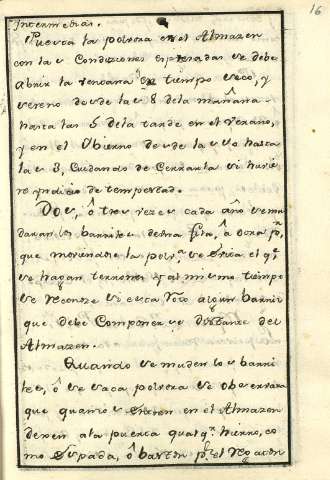 16
Intermedias.
Puesta la polvora en el Almazen
con las Condiciones espresadas se debe
abrir la ventana en tiempo seco, y
sereno desde las 8 dela mañana
hasta las 5 dela tarde en el Verano,
y en el Ybierno desde las hasta
las 3, Cuidando de Cerrarla si huvie
re yndicio de tempestad.
Dos, ô tres vezes cada año se mu
daran los barriles de una fila, â otra pª
que moviendose la polvª se evita el qᵉ
se hagan terrones y al mismo tiempo
se reconose si esta roto algun barril
que debe Componerse distante del
Almazen.
Quando se muden los barri
les, ô se saca polvora se observara
que quantos entren en el Almazen
dexen ala puerta qualqª hierno, co
mo Espada, ô baston pʳ el regaton